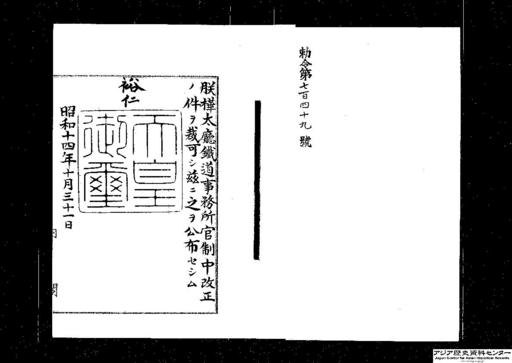 勅令第七百四十九號
朕樺太廳鐵道事務所官制中改正
ノ件ヲ裁可シ茲ニ之ヲ公布セシム
裕仁
天皇御璽
昭和十四年十月三十一日
アジア歴史資料センター
Japan Center for Asian Historical Records